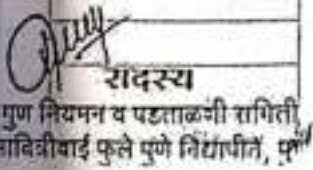 सदस्य
गुण नियमन व पडताळणी समिती,
सावित्रीबाई फुले पुणे विद्यापीठ, पुणे